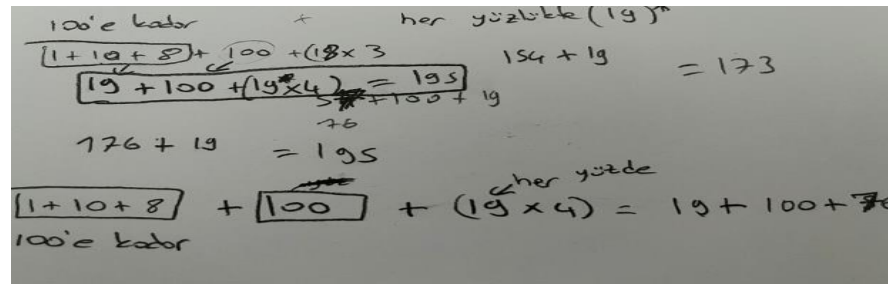 100'e kadar + her yüzlükte (19)
[1 + 10 + 8] + 100 + (18 x 3 154 + 19 = 173
19 + 100 + (19 x 4) = 195
+ 100 + 19
76
176 + 19 = 195
her yüzde
[1 + 10 + 8] + [100] + (19 x 4) = 19 + 100 + 76
100'e kadar